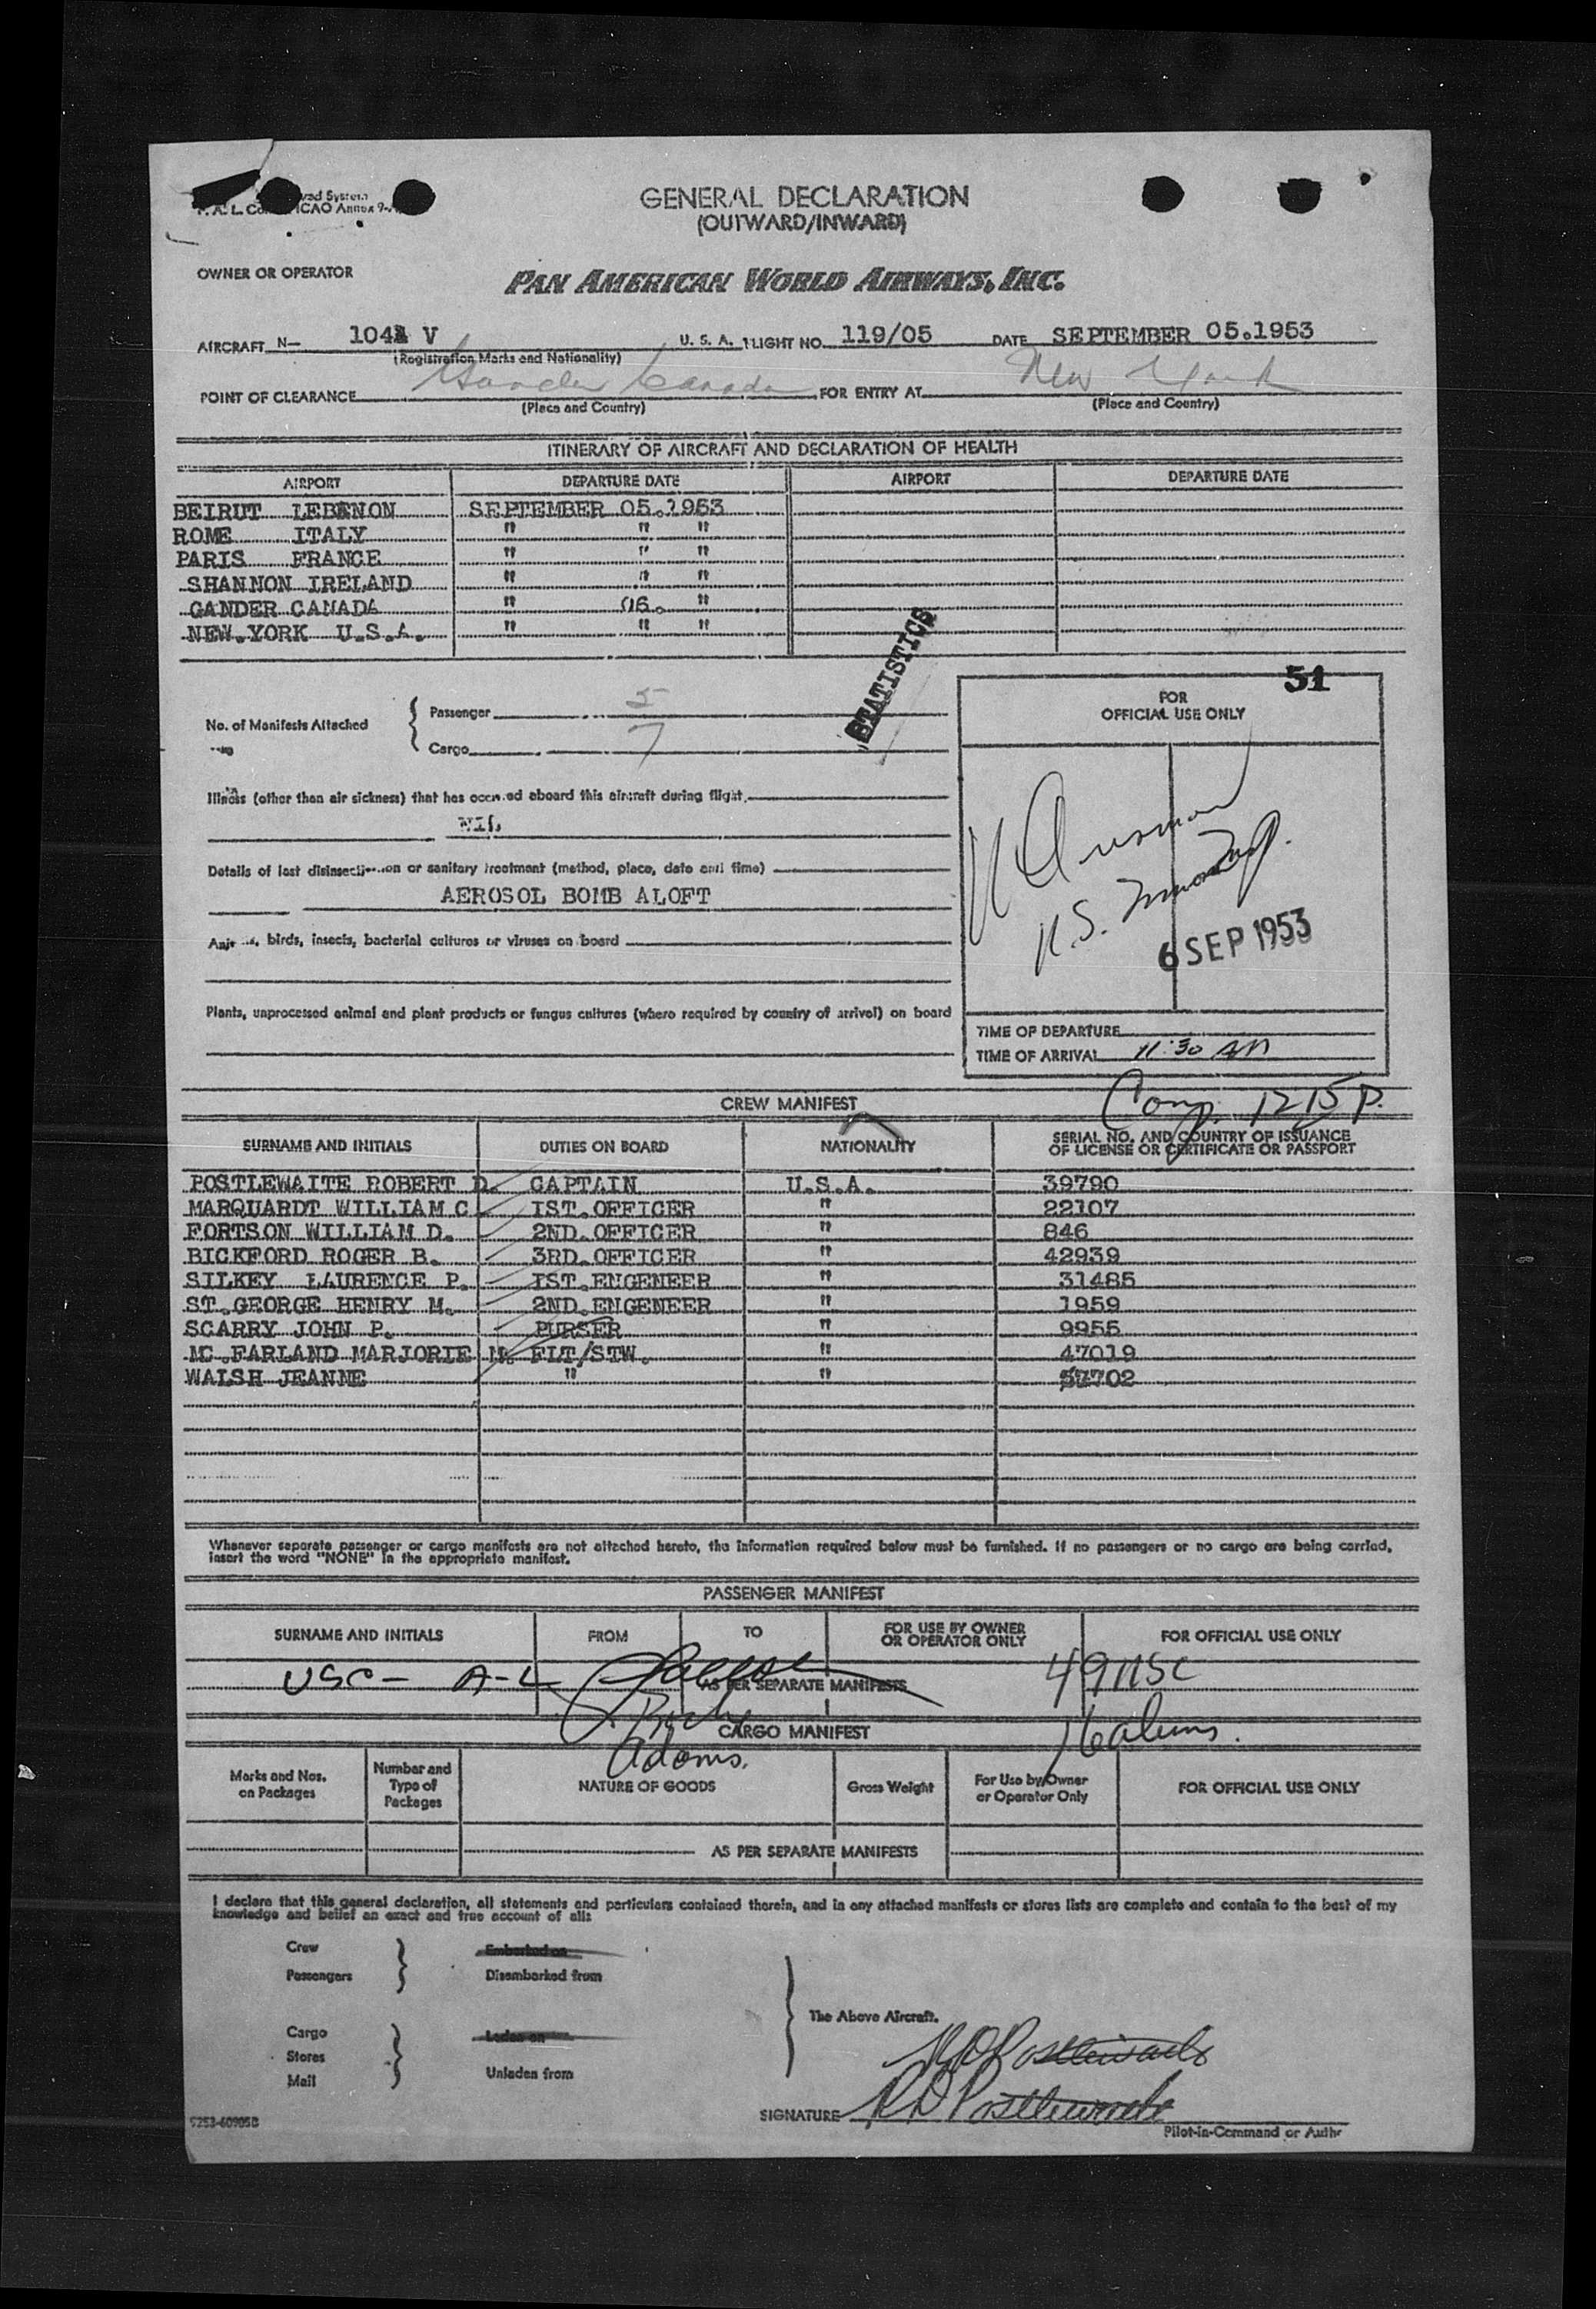 GENERAL DECLARATION
(OUTWARD/INWARD)
OWNER OR OPERATOR
PAN AMERICAN WORLD AIRWAYS, INC.
AIRCRAFT N- V U. S. A. FLIGHT NO. 119/05 DATE SEPTEMBER 05.1953
(Registration Marks and Nationality)
POINT OF CLEARANCE Gander Canada FOR ENTRY AT New York
(Place and Country) (Place and Country)
ITINERARY OF AIRCRAFT AND DECLARATION OF HEALTH
AIRPORT DEPARTURE DATE AIRPORT DEPARTURE DATE
BEIRUT LEBANON SEPTEMBER 05.1953
ROME ITALY " " "
PARIS FRANCE " " "
SHANNON IRELAND " " "
GANDER CANADA " 06. "
NEW.YORK U.S.A. " " "
STATISTICS
51
FOR
OFFICIAL USE ONLY
No. of Manifests Attached
Passenger 5
Cargo 7
Illness (other than air sickness) that has occurred aboard this aircraft during flight
NIL
Details of last disinsectization or sanitary treatment (method, place, date and time)
AEROSOL BOMB ALOFT
birds, insects, bacterial cultures or viruses on board
Plants, unprocessed animal and plant products or fungus cultures (where required by country of arrival) on board
6 SEP 1953
TIME OF DEPARTURE
TIME OF ARRIVAL 11:30 AM
Comp. 1215 P.
CREW MANIFEST
SURNAME AND INITIALS DUTIES ON BOARD NATIONALITY SERIAL NO. AND COUNTRY OF ISSUANCE
OF LICENSE OR CERTIFICATE OR PASSPORT
POSTLEWAITE ROBERT D. CAPTAIN U.S.A. 39790
MARQUARDT WILLIAM C. 1ST.OFFICER " 22107
FORTSON WILLIAM D. 2ND.OFFICER " 846
BICKFORD ROGER B. 3RD.OFFICER " 42939
SILKEY LAURENCE P. 1ST.ENGENEER " 31485
ST.GEORGE HENRY M. 2ND.ENGENEER " 1959
SCARRY JOHN P. PURSER " 9955
MC.FARLAND MARJORIE M. FLT/STW. " 47019
WALSH JEANNE " "
Whenever separate passenger or cargo manifests are not attached hereto, the information required below must be furnished. If no passengers or no cargo are being carried,
insert the word "NONE" in the appropriate manifest.
PASSENGER MANIFEST
SURNAME AND INITIALS FROM TO FOR USE BY OWNER
OR OPERATOR ONLY FOR OFFICIAL USE ONLY
USC- A-L 49 USC
AS PER SEPARATE MANIFESTS
CARGO MANIFEST
Adams.
Marks and Nos.
on Packages Number and
Type of
Packages NATURE OF GOODS Gross Weight For Use by Owner
or Operator Only FOR OFFICIAL USE ONLY
AS PER SEPARATE MANIFESTS
I declare that this general declaration, all statements and particulars contained therein, and in any attached manifests or stores lists are complete and contain to the best of my
knowledge and belief an exact and true account of all:
Crew Embarked on
Passengers Disembarked from
The Above Aircraft.
Cargo Laden on
Stores
Mail Unladen from
RD Postlewaite
SIGNATURE RD Postlewaite
Pilot-in-Command or